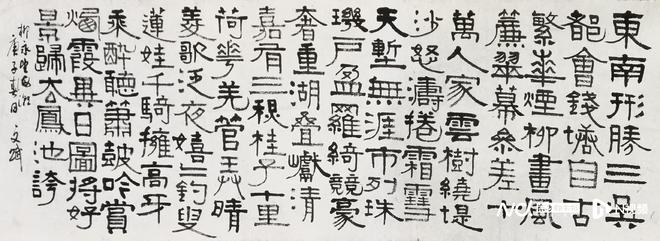 東南形勝三吳
都會錢塘自古
繁華煙柳畫風
簾翠幕參差十
萬人家雲樹繞堤
沙怒濤捲霜雪
天塹無涯市列珠
璣戶盈羅綺競豪
奢重湖疊巘清
嘉有三秋桂子十里
荷花羌管弄晴
菱歌泛夜嬉〻釣叟
蓮娃千騎擁高牙
乘醉聽簫鼓吟賞
煙霞異日圖將好
景歸去鳳池誇
柳永望海潮
庚子夏月 文斌